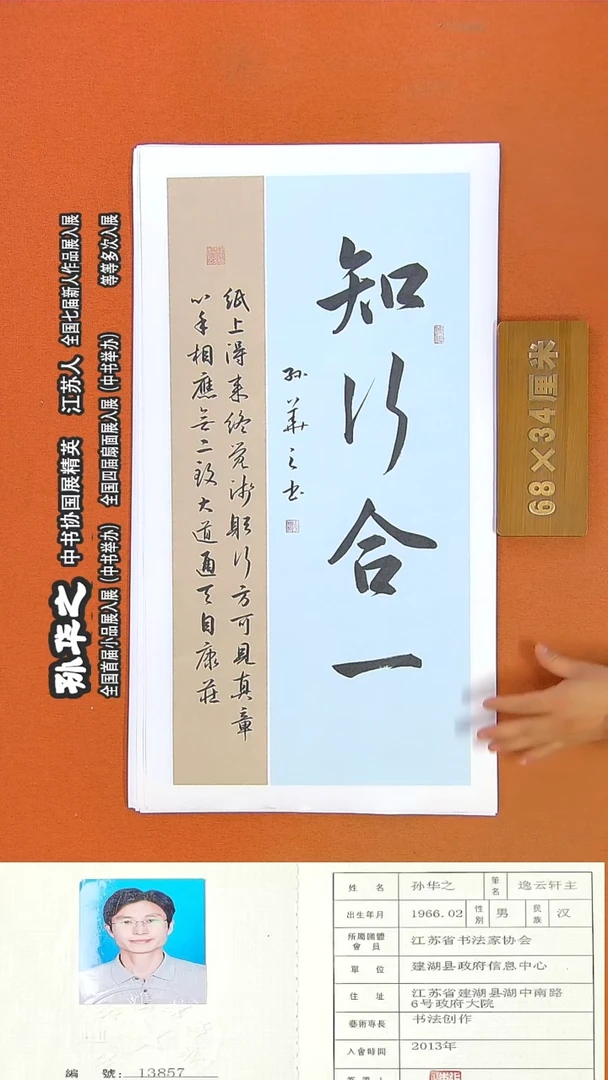 知行合一
孙華之书
纸上得来终觉浅躬行方可见真章
心手相應无二致大道通天自康莊
68×34厘米
孙华之 中书协国展精英 江苏人 全国七届新人作品展入展
全国首届小品展入展(中书举办) 全国四届扇面展入展(中书举办) 等等多次入展
姓名 孙华之 筆名 逸云轩主
出生年月 1966.02 性别 男 民族 汉
所屬團體會員 江苏省书法家协会
單位 建湖县政府信息中心
住址 江苏省建湖县湖中南路6号政府大院
藝術專長 书法创作
入會時間 2013年
編號: 13857